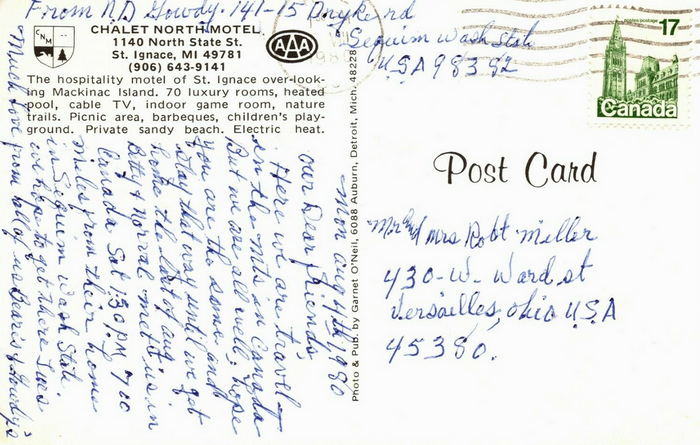 From N.D Gowdy. 141-15 Dryke rd
Sequim Wash State
USA 98382
CHALET NORTH MOTEL
1140 North State St.
St. Ignace, MI 49781
(906) 643-9141
AAA
The hospitality motel of St. Ignace over-look-
ing Mackinac Island. 70 luxury rooms, heated
pool, cable TV, indoor game room, nature
trails. Picnic area, barbeques, children's play-
ground. Private sandy beach. Electric heat.
Mon aug 4th 1980
our Dear friends,
Here we are travel-
in the mts in Canada
But we are all well; hope
you are the same and
stay that way until we get
home the last of aug.
Bill & Norval met us in
Canada Sat 1:30 PM 700
miles from their home
in Sequim Wash State.
we hope to get there Tues
Much love from all of us
Gowdy's
Photo & Pub. by Garnet O'Neil, 6088 Auburn, Detroit, Mich. 48228
postage
17
Canada
Post Card
Mr and Mrs Robt Miller
430-W-Ward st
Versailles, ohio U.S.A
45380.